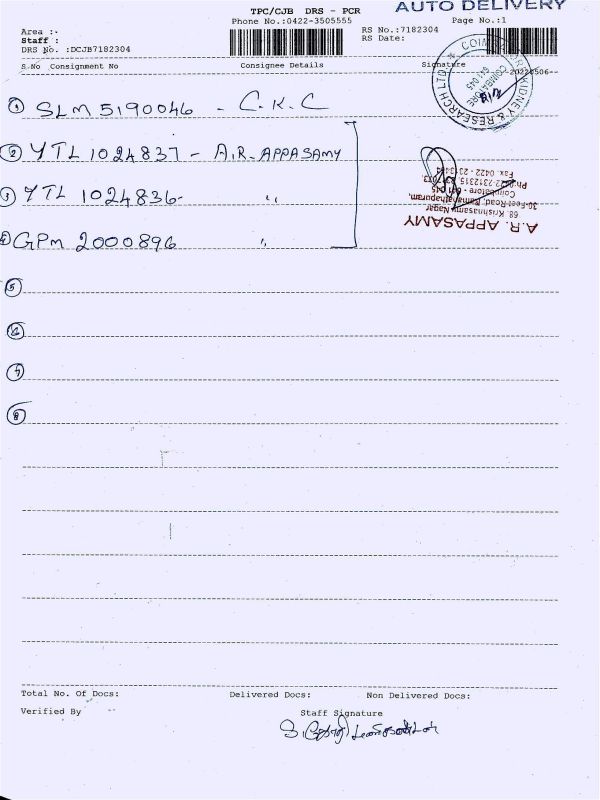 AUTO DELIVERY
TPC/CJB DRS - PCR
Phone No.:0422-3505555
Page No.:1
Area :-
Staff :
DRS No. :DCJB7182304
RS No.:7182304
RS Date:
S.No Consignment No Consignee Details Signature
① SLM 5190046 - C.K.C
② YTL 1024837 - A.R. APPASAMY
③ YTL 1024836- "
④ GPM 2000896 "
⑤
⑥
⑦
⑧
KIDNEY & RESEARCH LTD
COIMBATORE
641 045
A.R. APPASAMY
68, Krishnasamy Nagar
30 Feet Road, Ramanathapuram,
Coimbatore - 641 045
Total No. Of Docs: Delivered Docs: Non Delivered Docs:
Verified By Staff Signature